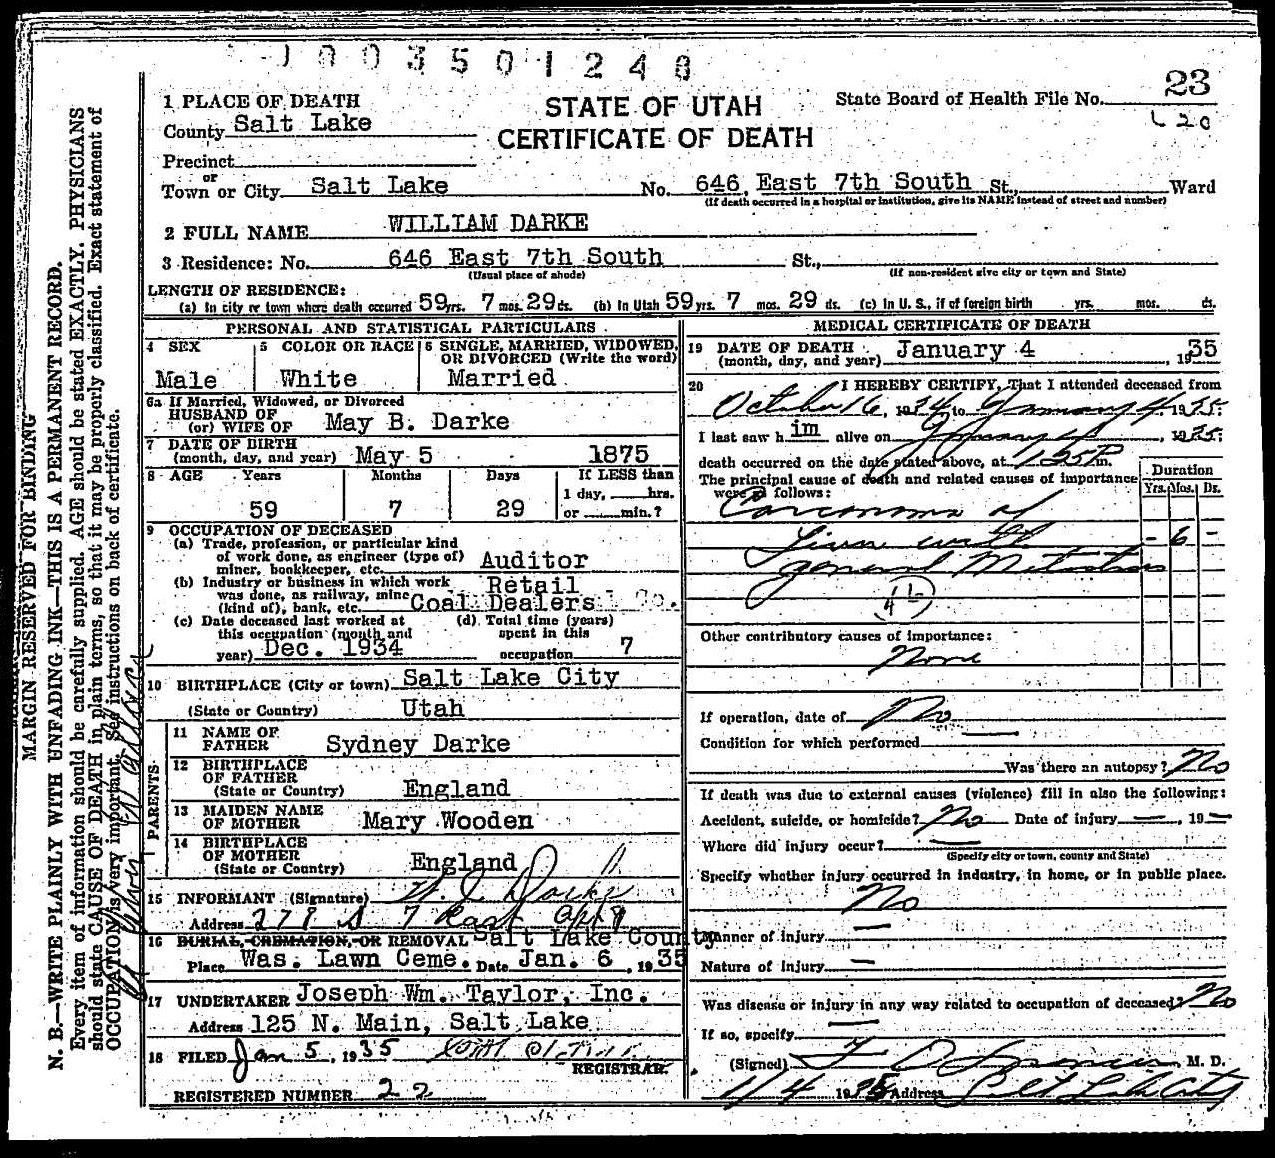 1003501248
STATE OF UTAH
CERTIFICATE OF DEATH
State Board of Health File No. 23
1 PLACE OF DEATH
County Salt Lake
Precinct
or
Town or City Salt Lake No. 646 East 7th South St., Ward
(If death occurred in a hospital or institution, give its NAME instead of street and number)
2 FULL NAME WILLIAM DARKE
3 Residence: No. 646 East 7th South St.,
(Usual place of abode) (If non-resident give city or town and State)
LENGTH OF RESIDENCE:
(a) In city or town where death occurred 59 yrs. 7 mos. 29 ds. (b) In Utah 59 yrs. 7 mos. 29 ds. (c) In U. S., if of foreign birth yrs. mos. ds.
PERSONAL AND STATISTICAL PARTICULARS
4 SEX
Male
5 COLOR OR RACE
White
6 SINGLE, MARRIED, WIDOWED,
OR DIVORCED (Write the word)
Married
6a If Married, Widowed, or Divorced
HUSBAND OF
(or) WIFE OF May B. Darke
7 DATE OF BIRTH
(month, day, and year) May 5 1875
8 AGE Years Months Days If LESS than
1 day, hrs.
59 7 29 or min.?
9 OCCUPATION OF DECEASED
(a) Trade, profession, or particular kind
of work done, as engineer (type of)
miner, bookkeeper, etc. Auditor
(b) Industry or business in which work
was done, as railway, mine
(kind of), bank, etc. Retail
Coal Dealers Co.
(c) Date deceased last worked at
this occupation (month and
year) Dec. 1934
(d) Total time (years)
spent in this
occupation 7
10 BIRTHPLACE (City or town) Salt Lake City
(State or Country) Utah
PARENTS
11 NAME OF
FATHER Sydney Darke
12 BIRTHPLACE
OF FATHER
(State or Country) England
13 MAIDEN NAME
OF MOTHER Mary Wooden
14 BIRTHPLACE
OF MOTHER
(State or Country) England
15 INFORMANT (Signature) W. Darke
Address 278 S 7 East apt 9
16 BURIAL, CREMATION, OR REMOVAL Salt Lake County
Place Was. Lawn Ceme. Date Jan. 6, 1935
17 UNDERTAKER Joseph Wm. Taylor, Inc.
Address 125 N. Main, Salt Lake
18 FILED Jan 5, 1935
REGISTRAR.
REGISTERED NUMBER 22
MEDICAL CERTIFICATE OF DEATH
19 DATE OF DEATH
(month, day, and year) January 4, 1935
20 I HEREBY CERTIFY, That I attended deceased from
October 16, 1934 to January 4, 1935;
I last saw him alive on January 4, 1935;
death occurred on the date stated above, at 1:25 P m.
The principal cause of death and related causes of importance
were as follows:
Duration
Yrs. Mos. Ds.
Carcinoma of
Liver with - 6 -
general Metastasis
Other contributory causes of importance:
None
If operation, date of No
Condition for which performed
Was there an autopsy? No
If death was due to external causes (violence) fill in also the following:
Accident, suicide, or homicide? No Date of injury —, 19 —
Where did injury occur? —
(Specify city or town, county and State)
Specify whether injury occurred in industry, in home, or in public place.
No
Manner of injury —
Nature of injury —
Was disease or injury in any way related to occupation of deceased? No
If so, specify —
(Signed) M. D.
1/4 1935 Address Salt Lake City
MARGIN RESERVED FOR BINDING
N. B.—WRITE PLAINLY WITH UNFADING INK—THIS IS A PERMANENT RECORD.
Every item of information should be carefully supplied. AGE should be stated EXACTLY. PHYSICIANS
should state CAUSE OF DEATH in plain terms, so that it may be properly classified. Exact statement of
OCCUPATION is very important. See instructions on back of certificate.